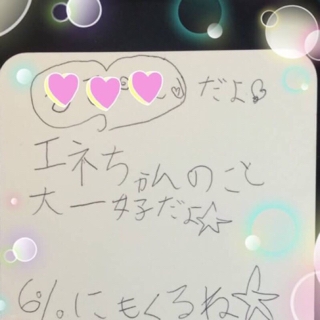 だよ
エネちゃんのこと
大一好だよ☆
6%にもくるね☆